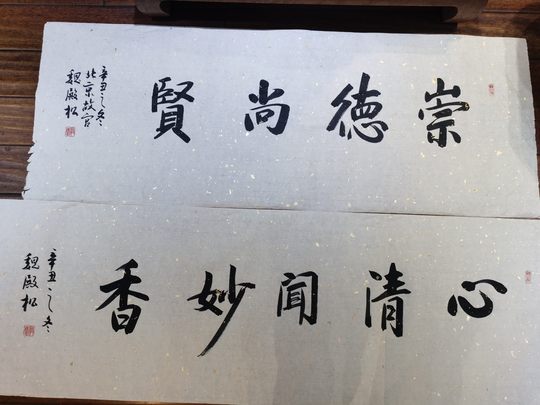 崇德尚賢
辛丑之冬
北京故宫
魏殿松
心清聞妙香
辛丑之冬
魏殿松